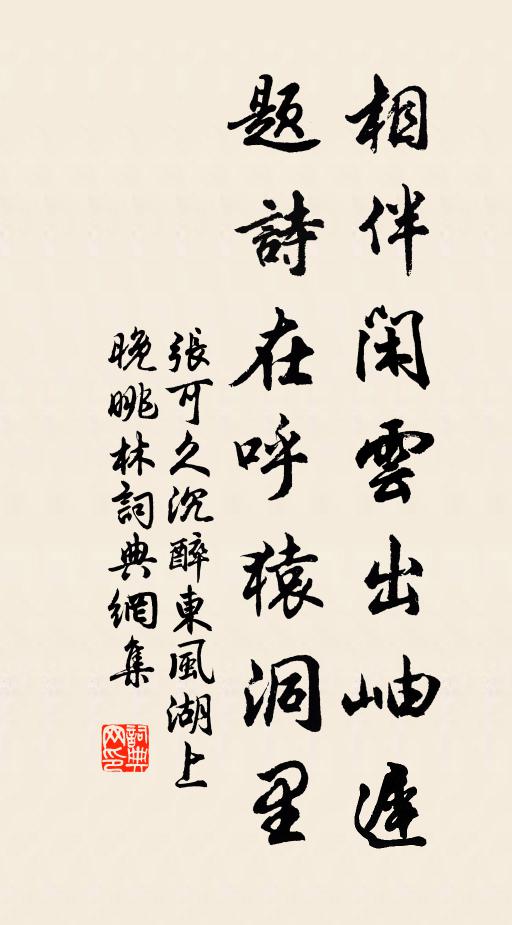 相伴閑雲出岫遲
題詩在呼猿洞里
張可久沉醉東風湖上
晚眺林詞典網集
詞典
网印